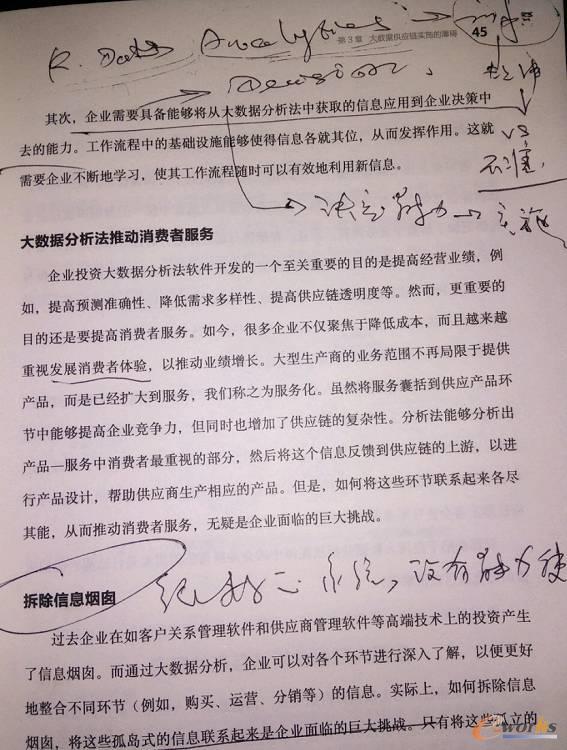 Analytics →
第3章 大数据供应链实施的障碍
45
Decision
其次，企业需要具备能够将从大数据分析法中获取的信息应用到企业决策中
去的能力。工作流程中的基础设施能够使得信息各就其位，从而发挥作用。这就
VS
需要企业不断地学习，使其工作流程随时可以有效地利用新信息。
大数据分析法推动消费者服务
企业投资大数据分析法软件开发的一个至关重要的目的是提高经营业绩，例
如，提高预测准确性、降低需求多样性、提高供应链透明度等。然而，更重要的
目的还是要提高消费者服务。如今，很多企业不仅聚焦于降低成本，而且越来越
重视发展消费者体验，以推动业绩增长。大型生产商的业务范围不再局限于提供
产品，而是已经扩大到服务，我们称之为服务化。虽然将服务囊括到供应产品环
节中能够提高企业竞争力，但同时也增加了供应链的复杂性。分析法能够分析出
产品—服务中消费者最重视的部分，然后将这个信息反馈到供应链的上游，以进
行产品设计，帮助供应商生产相应的产品。但是，如何将这些环节联系起来各尽
其能，从而推动消费者服务，无疑是企业面临的巨大挑战。
系统，没有能力使
拆除信息烟囱
过去企业在如客户关系管理软件和供应商管理软件等高端技术上的投资产生
了信息烟囱。而通过大数据分析，企业可以对各个环节进行深入了解，以便更好
地整合不同环节（例如，购买、运营、分销等）的信息。实际上，如何拆除信息
烟囱，将这些孤岛式的信息联系起来是企业面临的巨大挑战。只有将这些孤立的
e-works